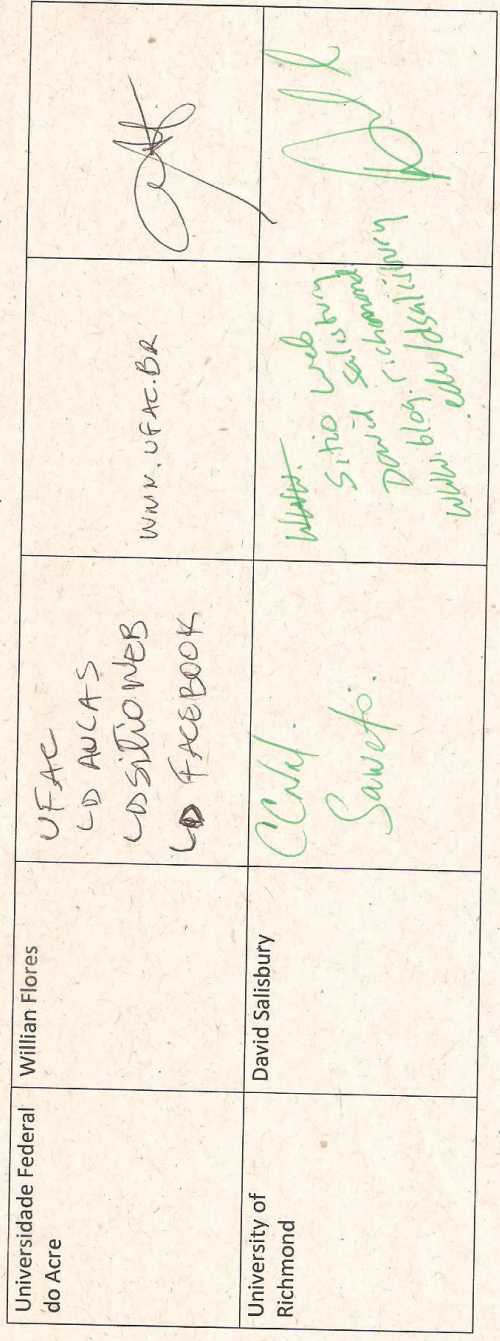 Universidade Federal
do Acre
Willian Flores
UFAC
AULAS
SITIO WEB
FACEBOOK
WWW.UFAC.BR
University of
Richmond
David Salisbury
Saweto.
www.
Sitio Web
David Salisbury
www.blog.richmond
.edu/dsalisbury